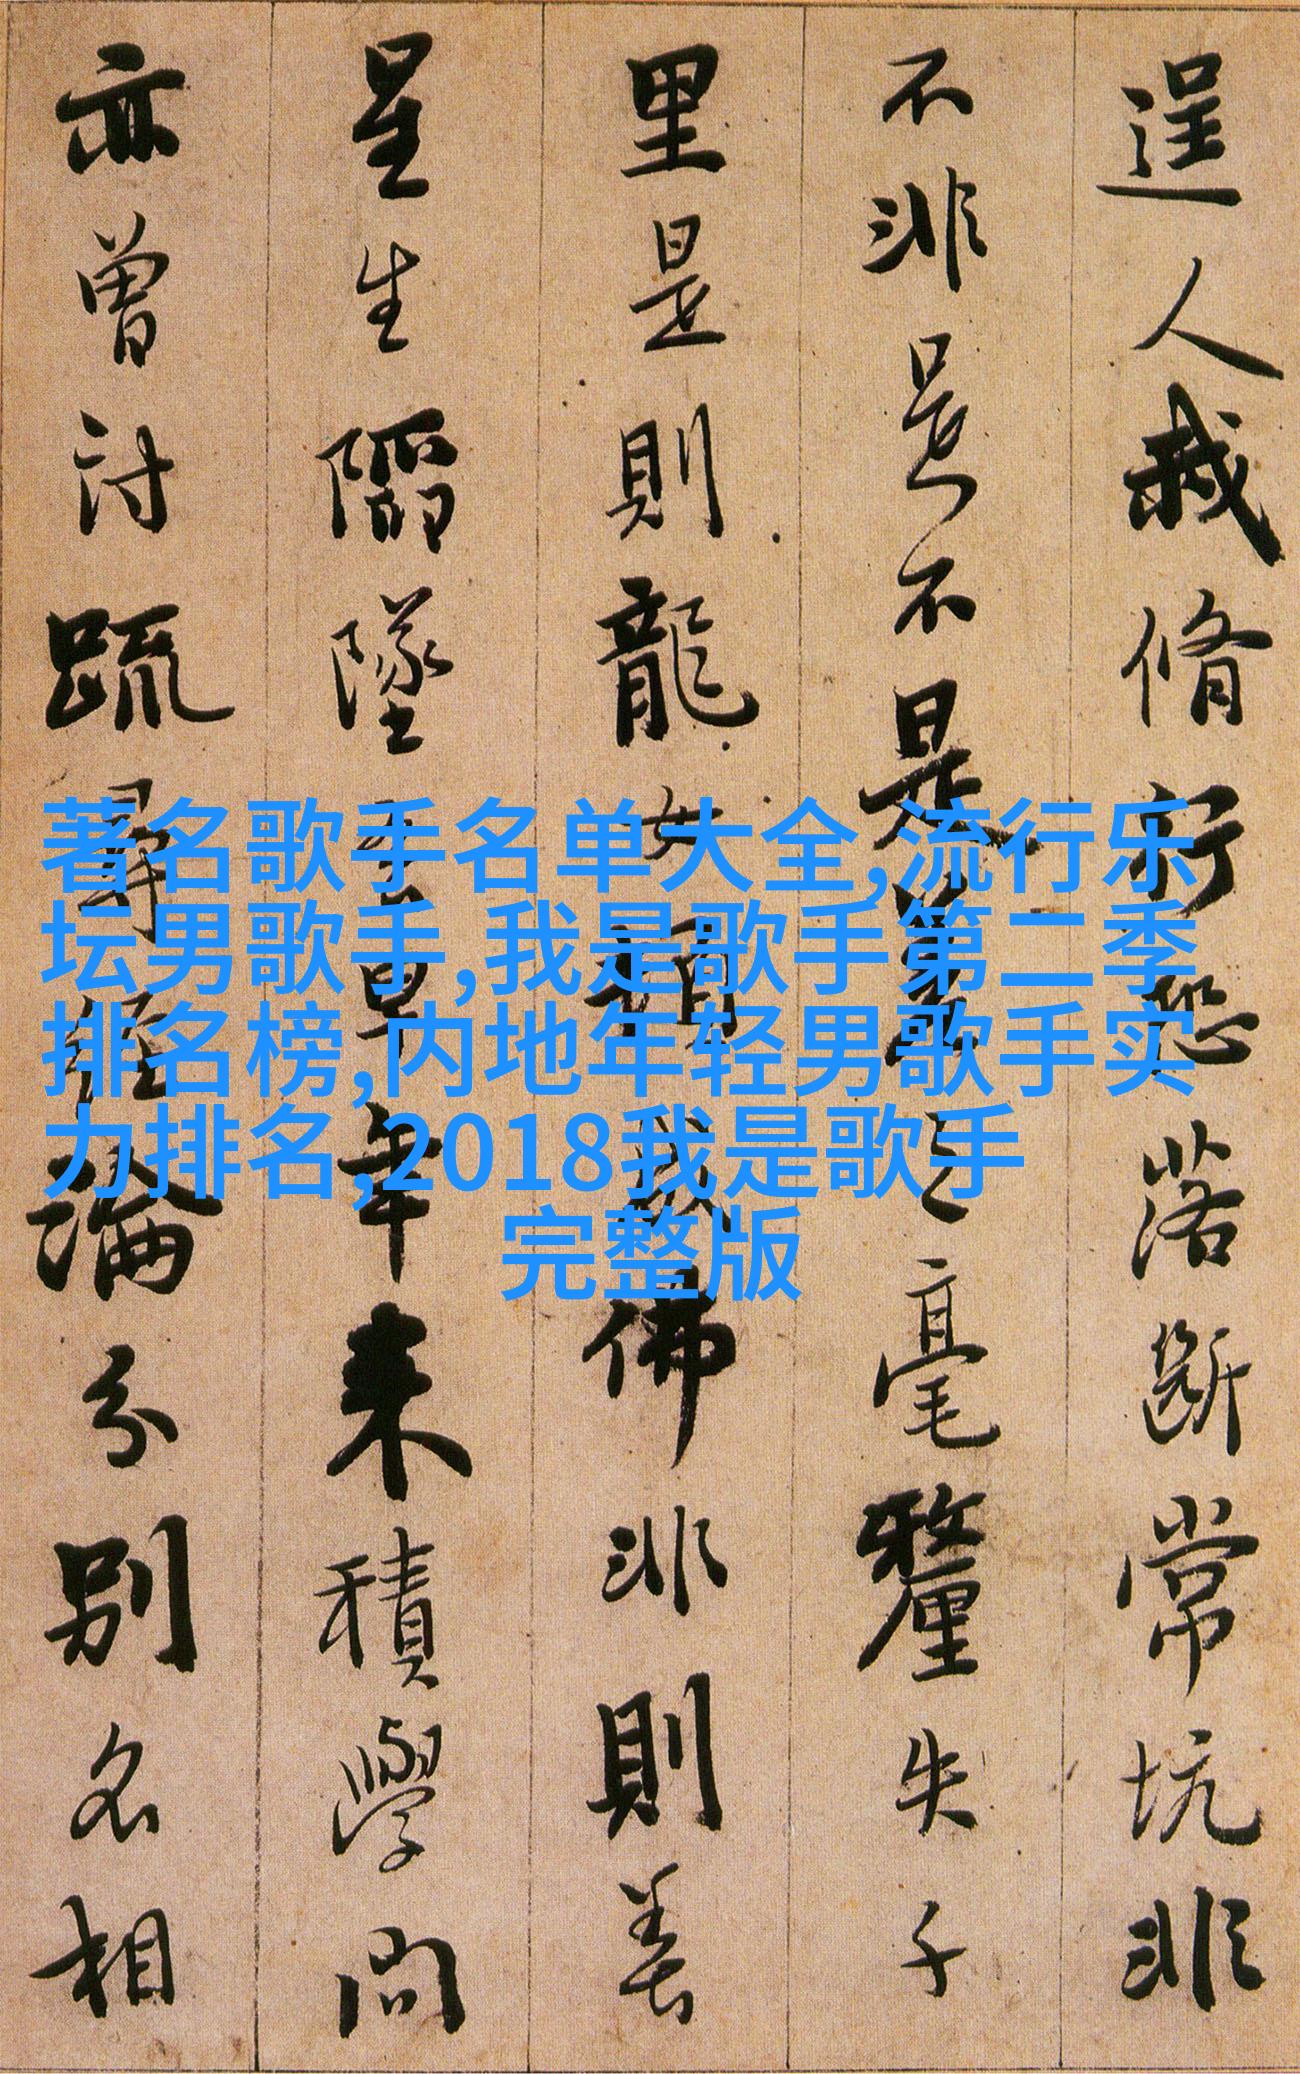 逞人我脩行恐落斷常坑非
不非是不是差之毫釐失千
里是則龍女頓成佛非則善
星生陷墜吾早年来積學問
亦曾討疏尋經論分別名相
著名歌手名单大全,流行乐
坛男歌手,我是歌手第二季
排名榜,内地年轻男歌手实
力排名,2018我是歌手
完整版